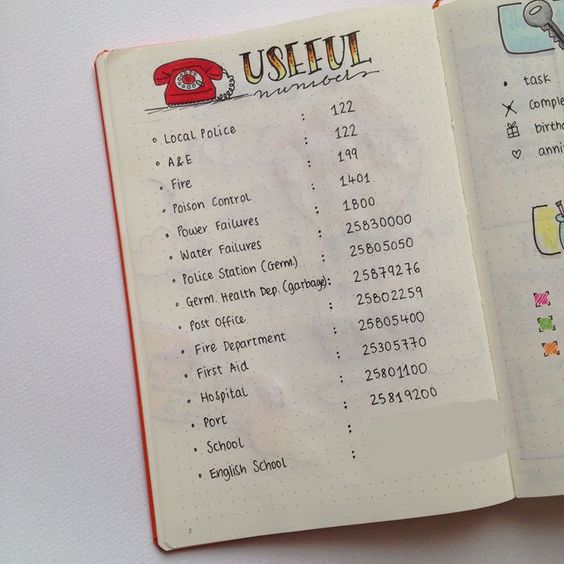 USEFUL
numbers
• Local Police : 122
• A&E : 122
• Fire : 199
• Poison Control : 1401
• Power Failures : 1800
• Water Failures : 25830000
• Police Station (Germ.) : 25805050
• Germ. Health Dep. (garbage) : 25879276
• Post Office : 25802259
• Fire Department : 25805400
• First Aid : 25305770
• Hospital : 25801100
• Port : 25819200
• School :
• English School :
2
• task